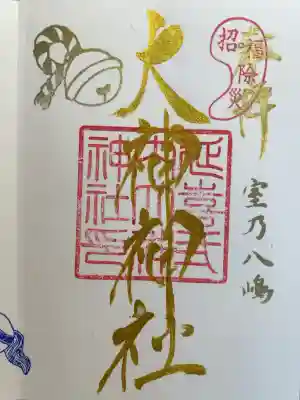 奉拝
招福除災
大神神社
室乃八嶋
延喜式内社
神社印